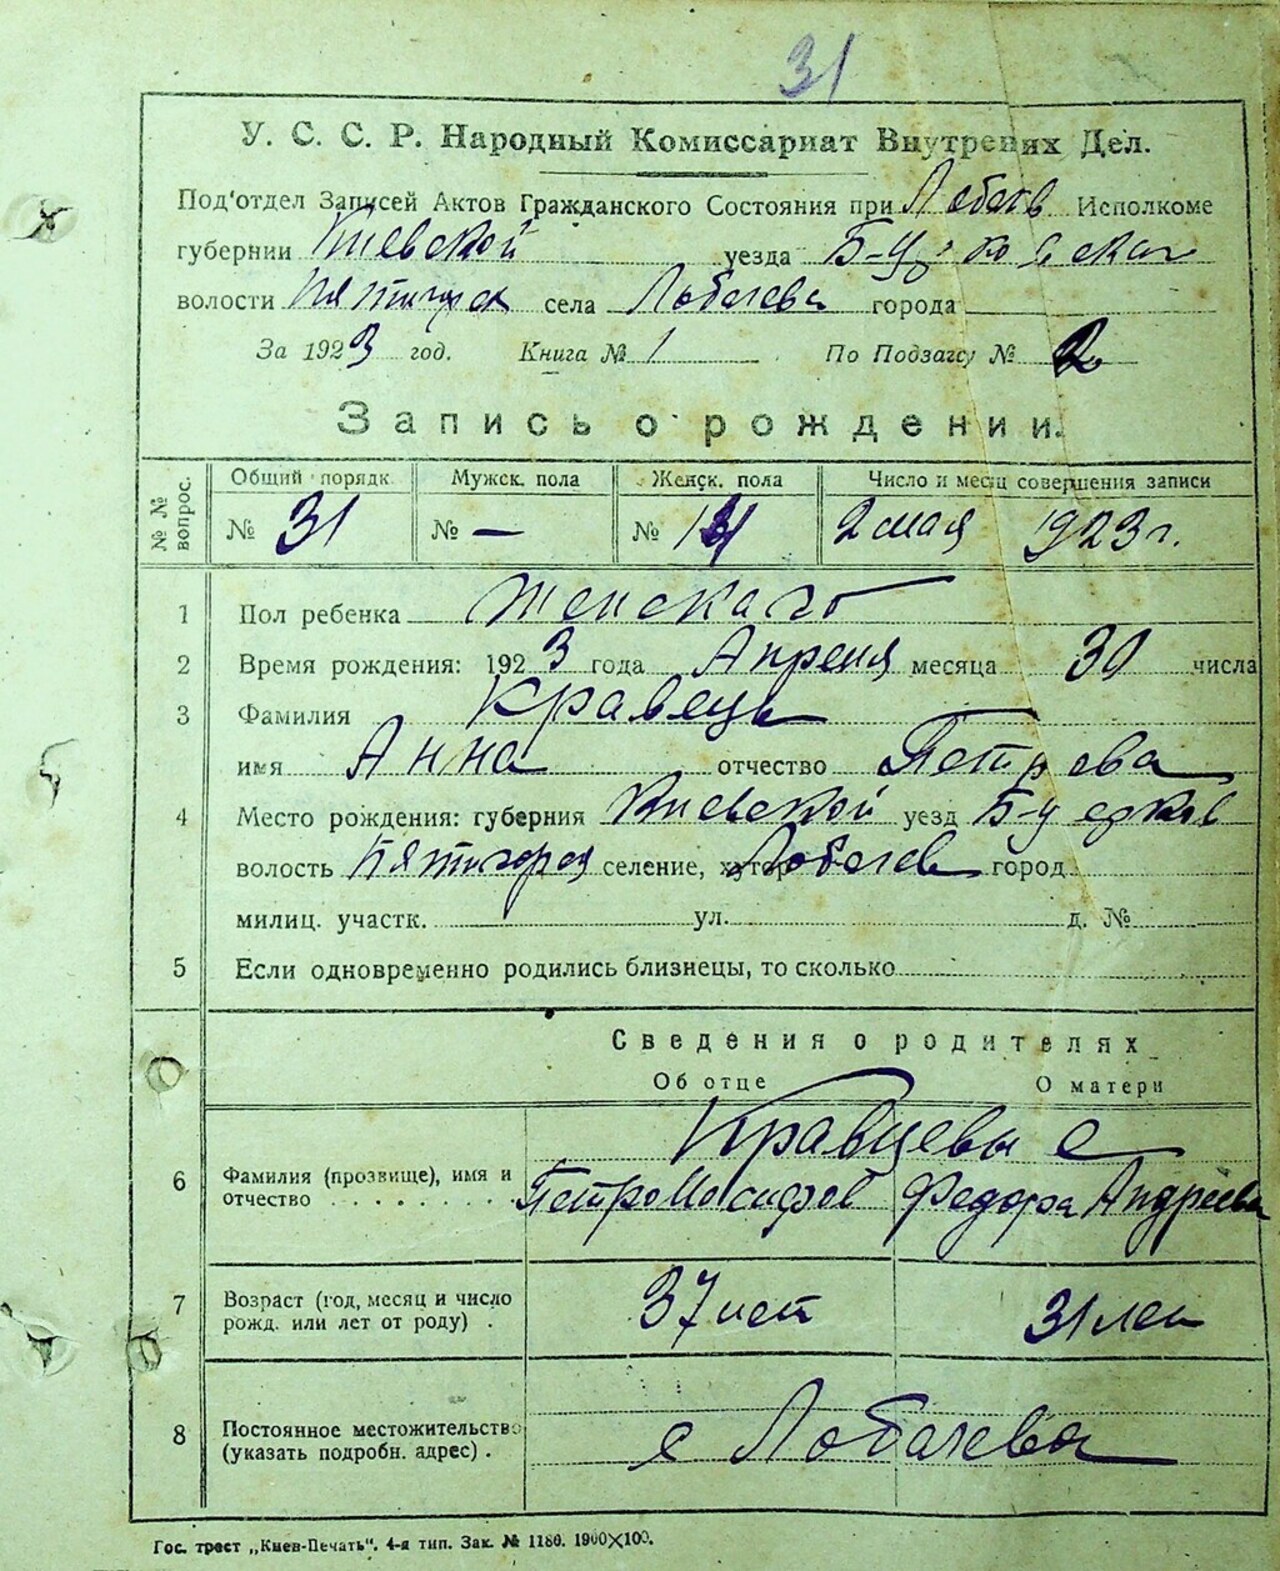 31
У. С. С. Р. Народный Комиссариат Внутрених Дел.
Под'отдел Записей Актов Гражданского Состояния при Лобач Исполкоме
губернии Киевской уезда
волости Пятигор села Лобачева города
За 1923 год. Книга № 1 По Подзагсу № 2
Запись о рождении.
№№ вопрос. Общий порядк. Мужск. пола Женск. пола Число и месяц совершения записи
№ 31 № — № 2 мая 1923 г.
1 Пол ребенка Женскаго
2 Время рождения: 1923 года Апреля месяца 30 числа
3 Фамилия Кравець
имя Анна отчество Петрова
4 Место рождения: губерния Киевской уезд
волость селение, хутор Лобачев город
милиц. участк. ул. д. №
5 Если одновременно родились близнецы, то сколько
Сведения о родителях
Об отце О матери
Кравцевы
6 Фамилия (прозвище), имя и Петро Иосифов Федора Андреева
отчество . . . . . . .
7 Возраст (год, месяц и число 37 лет 31 лет
рожд. или лет от роду) .
8 Постоянное местожительство с Лобачева
(указать подробн. адрес) .
Гос. трест „Киев-Печать“. 4-я тип. Зак. № 1180. 1900×100.